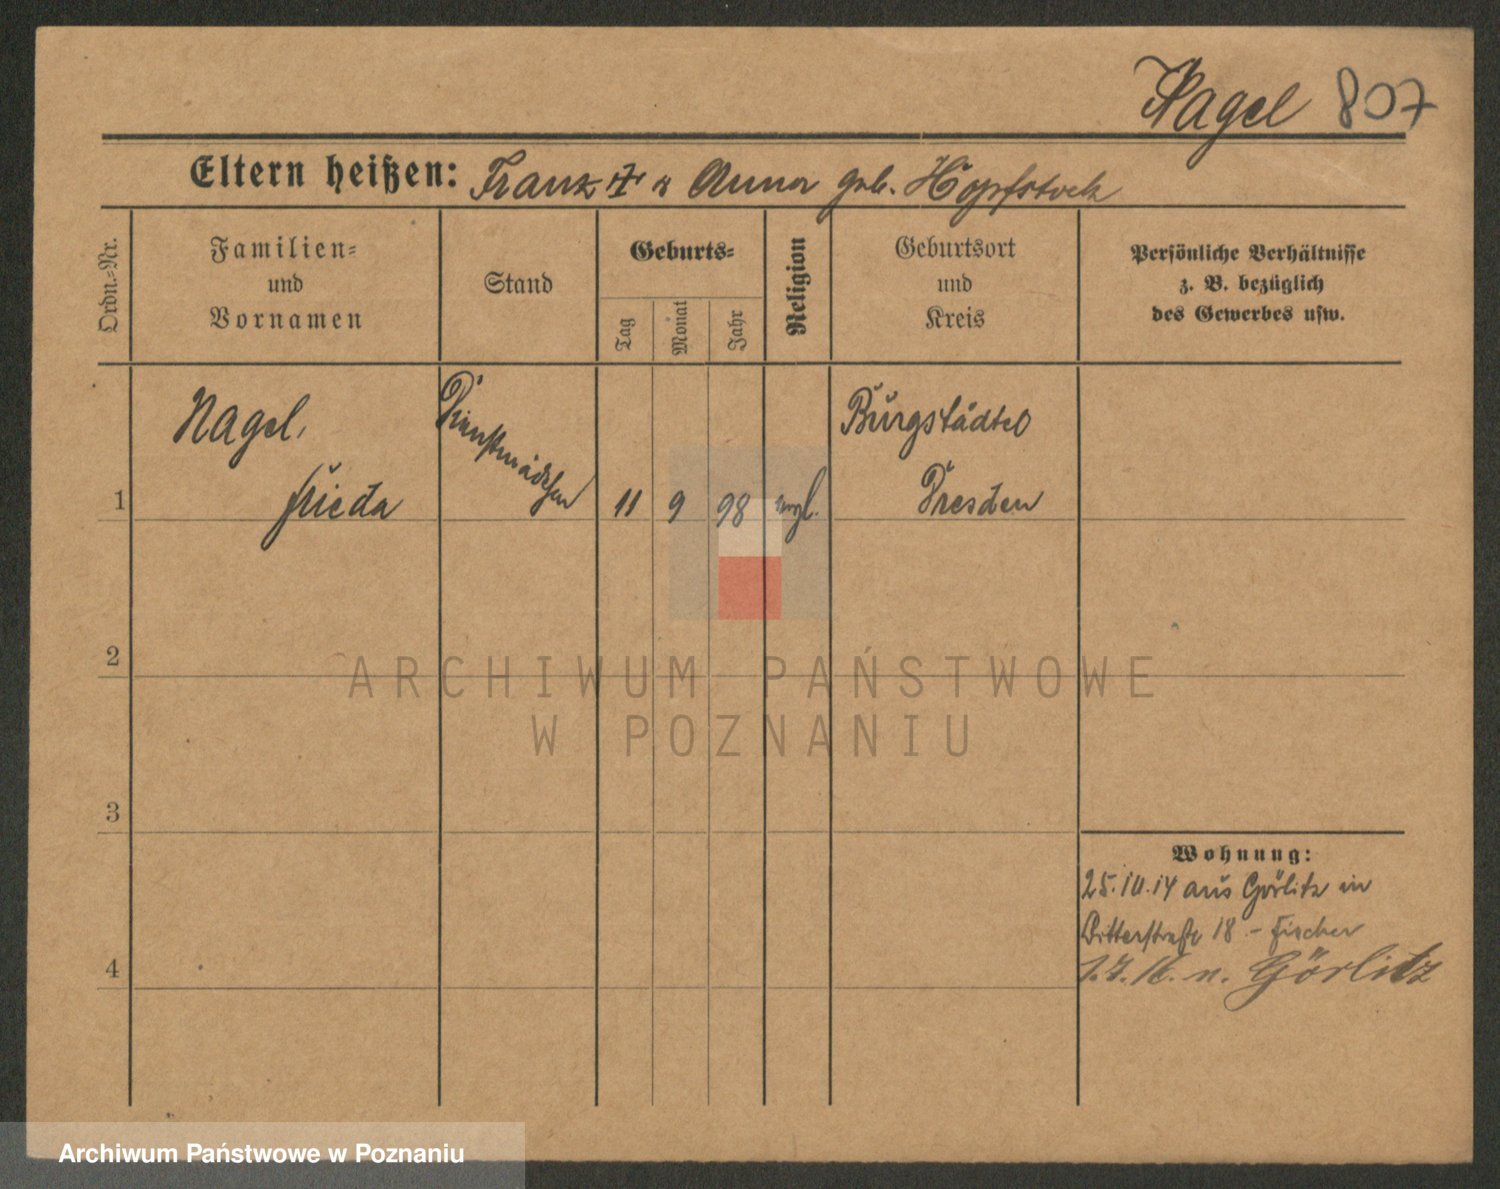 Nagel 807
Eltern heißen: Franz ✝ & Anna geb. Hopfstock
Ordn.-Nr.
Familien-
und
Vornamen
Stand
Geburts-
Tag
Monat
Jahr
Religion
Geburtsort
und
Kreis
Persönliche Verhältnisse
z. B. bezüglich
des Gewerbes usw.
1
Nagel,
Frieda
Dienstmädchen
11 9 98 evgl.
Burgstädtel
Dresden
2
3
4
Wohnung:
25.10.14 aus Görlitz in
18 - Fischer
n. Görlitz
ARCHIWUM PAŃSTWOWE
W POZNANIU
Archiwum Państwowe w Poznaniu